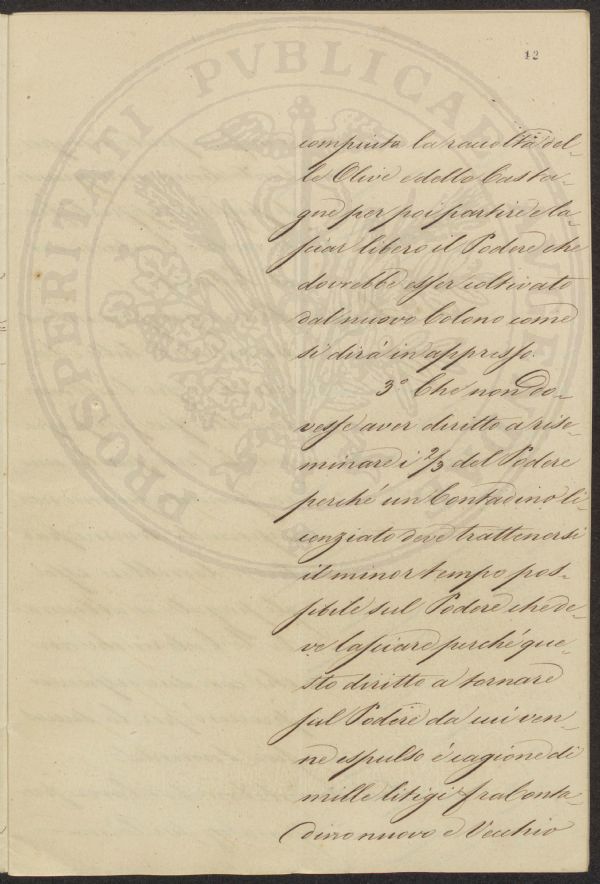 12
PROSPERITATI PVBLICAE
compiuta la raccolta del-
le Olive e delle Casta-
gne per poi partire e la-
sciar libero il Podere che
dovrebbe esser coltivato
dal nuovo Colono come
si dirà in appresso.
3º Che non do-
vesse aver diritto a rise-
minare i 2/3 del Podere
perché un Contadino li-
cenziato deve trattenersi
il minor tempo pos-
sibile sul Podere che de-
ve lasciare perché que-
sto diritto a tornare
sul Podere da cui ven-
ne espulso é cagione di
mille litigi fra Conta-
dino nuovo e Vecchio